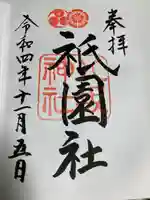 奉拝
祇園社
令和四年十一月五日